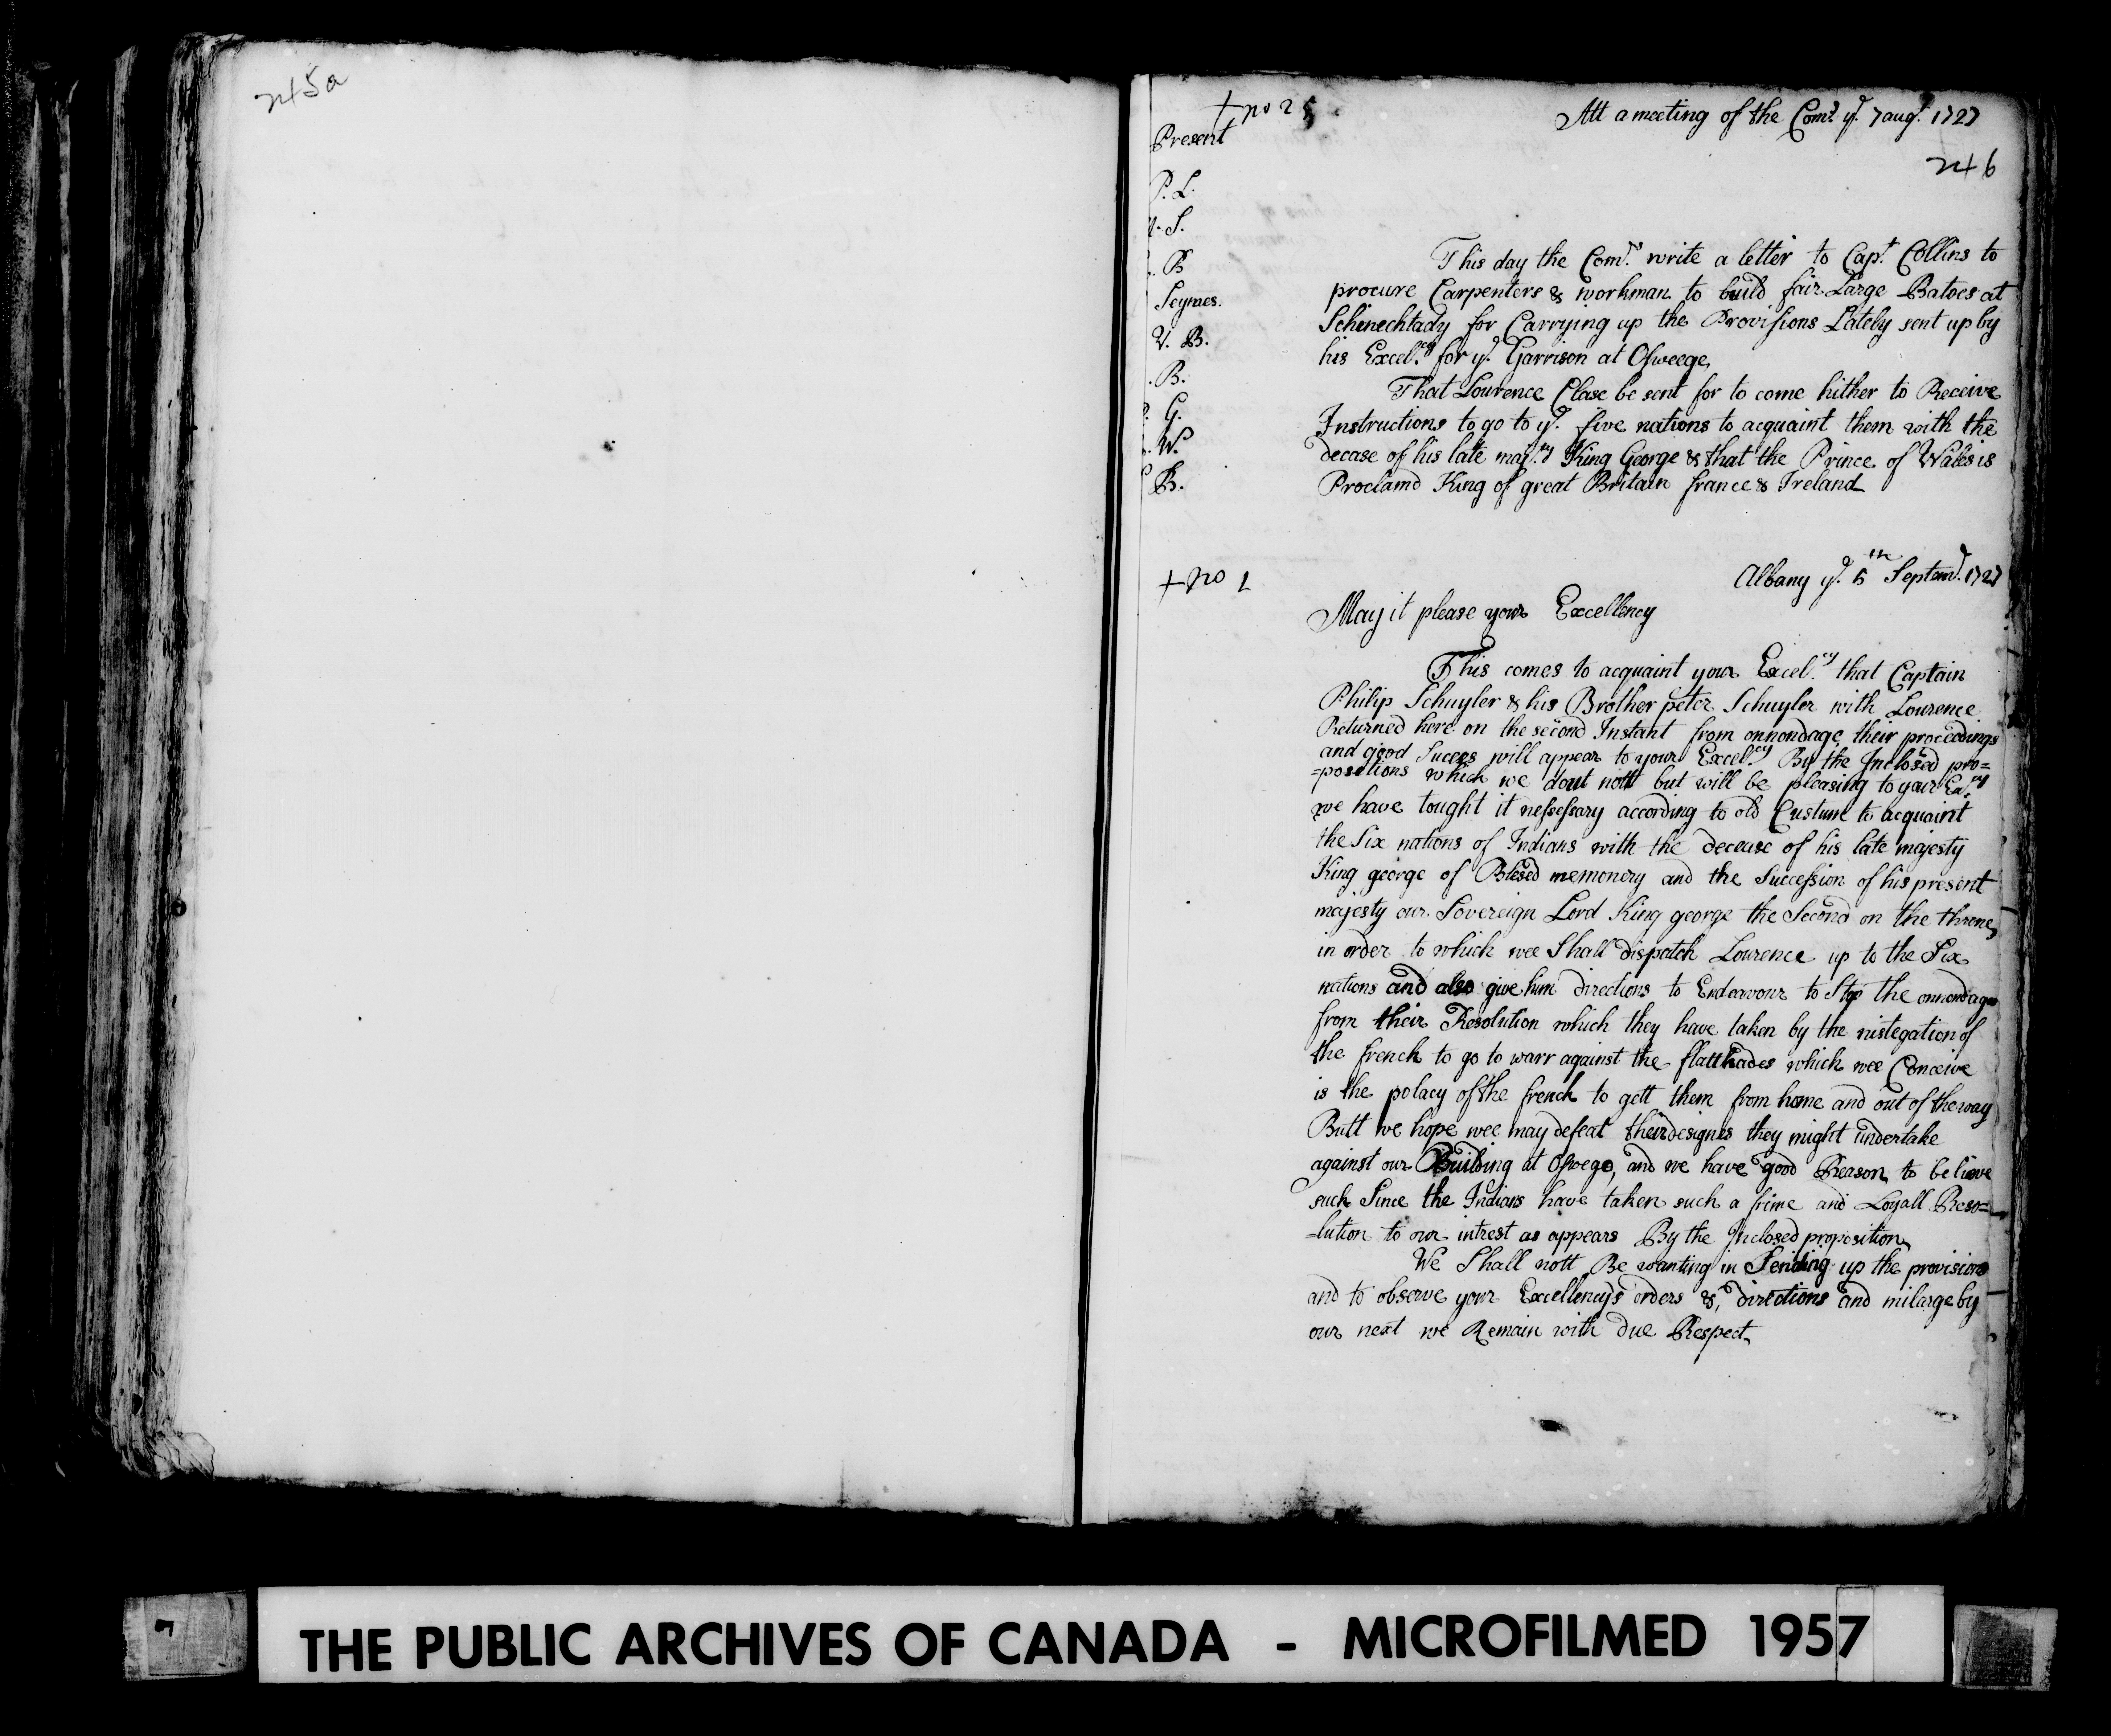 245a
+ no 2
Att a meeting of the Comrs. ye. 7 augt. 1727
Present
246
P. L.
S.
B
Seymes.
V. B.
B.
G.
W.
B.
This day the Comrs. write a letter to Capt. Collins to
procure Carpenters & workman to build fair Large Batoes at
Schinechtady for Carrying up the Provisions Lately sent up by
his Excel.cy for ye. Garrison at Osweege,
That Lourence Clase be sent for to come hither to Receive
Instructions to go to ye. five nations to acquaint them with the
decase of his late maj.ty King George & that the Prince of Wales is
Proclamd King of great Britain france & Ireland
+ no 1
Albany ye. 6th Septemr. 1727
May it please your Excellency
This comes to acquaint your Excel.cy that Captain
Philip Schuyler & his Brother peter Schuyler with Lourence
Returned here on the second Instant from onnondage, their proceedings
and good Sucess will appear to your Excel.cy By the Inclosed pro=
=positions which we dout nott but will be pleasing to your Ex.cy
we have tought it nessessary according to old Custume to acquaint
the Six nations of Indians with the decease of his late majesty
King george of Blesed memonery and the Succession of his present
majesty our Sovereign Lord King george the Second on the throne,
in order to which wee Shall dispatch Lourence up to the Six
nations and also give him directions to Endeavour to Stop the onnondages
from their Resolution which they have taken by the nistegation of
the french to go to warr against the flatthades which wee Conceive
is the polacy of the french to gett them from home and out of the way
Butt we hope wee may defeat their designes they might undertake
against our Building at Oswego, and we have good Reason to believe
such Since the Indians have taken such a firme and Loyall Reso=
=lution to our intrest as appears By the Inclosed proposition,
We Shall nott Be wanting in Sending up the provisions
and to observe your Excellency's orders & directions and inlarge by
our next we Remain with due Respect,
THE PUBLIC ARCHIVES OF CANADA - MICROFILMED 1957